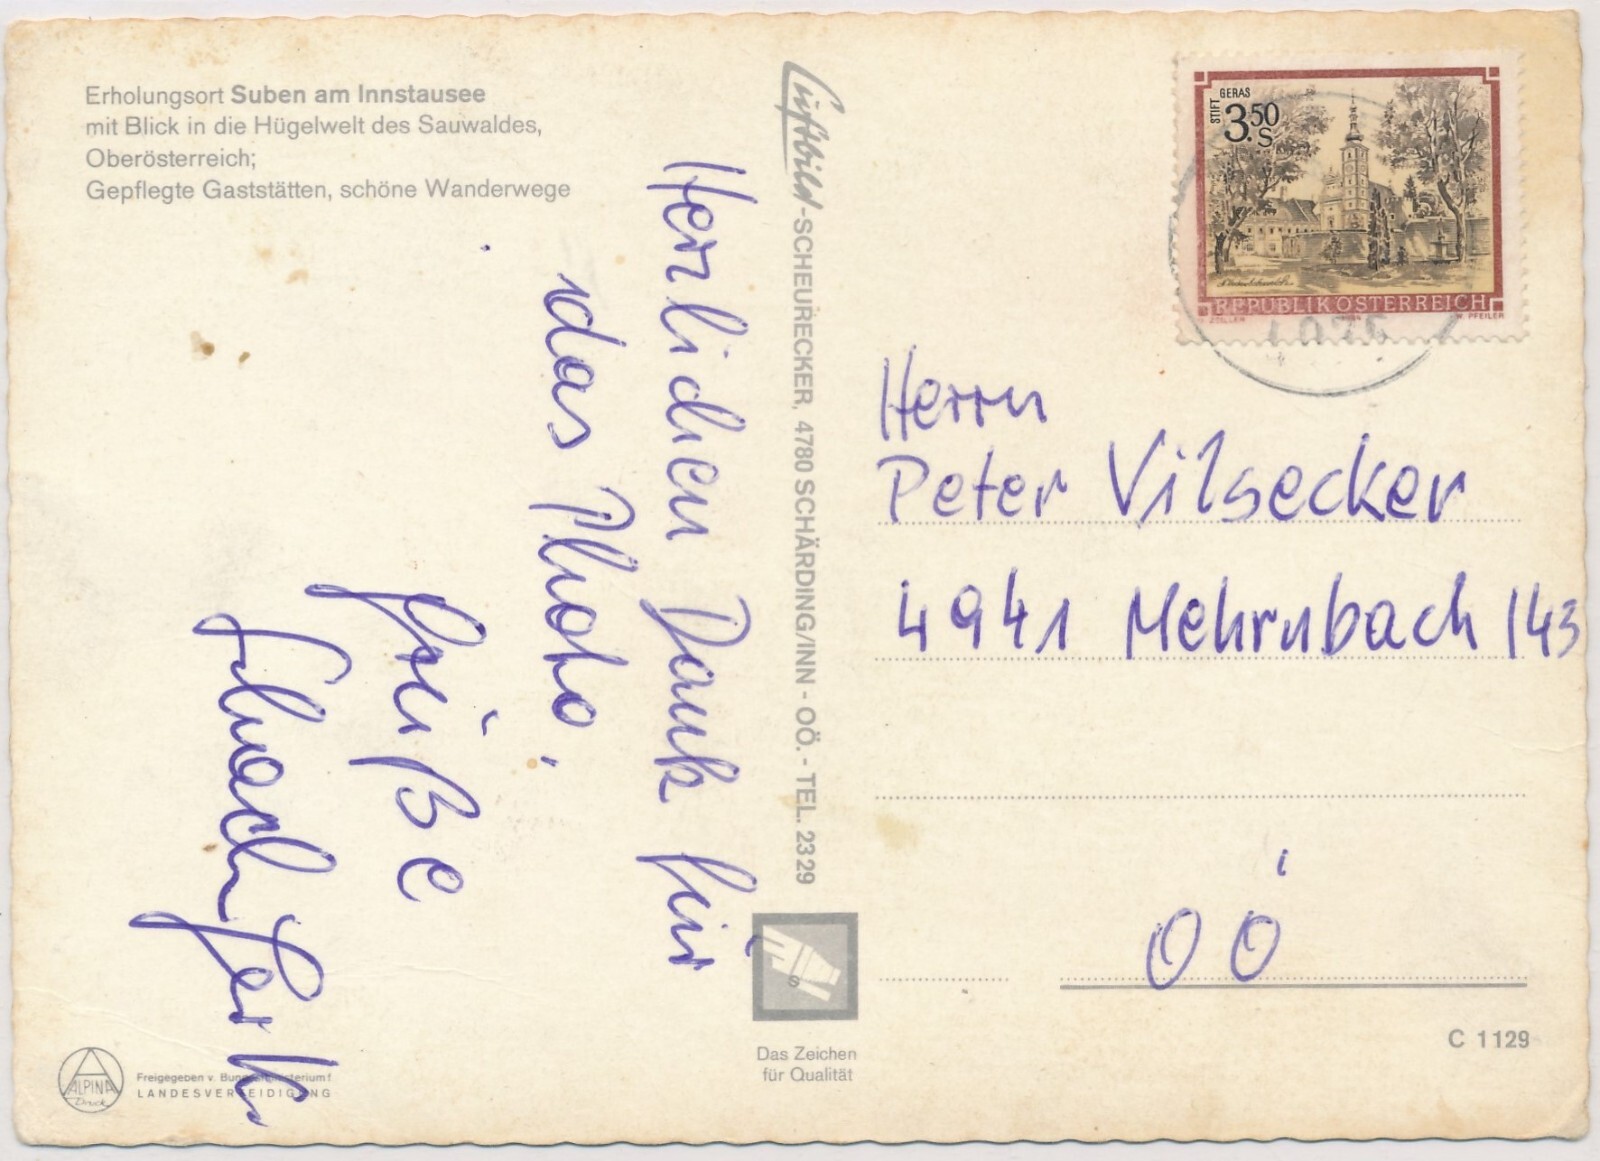 Erholungsort Suben am Innstausee
mit Blick in die Hügelwelt des Sauwaldes,
Oberösterreich;
Gepflegte Gaststätten, schöne Wanderwege
Herzlichen Dank für
das Photo.
Grüße
Luftbild-SCHEURECKER, 4780 SCHÄRDING/INN - OÖ. - TEL. 2329
STIFT GERAS
3.50
S
REPUBLIK ÖSTERREICH
ZEILLER
W. PFEILER
Herrn
Peter Vilsecker
4941 Mehrnbach 143
OÖ
C 1129
S
Das Zeichen
für Qualität
ALPINA
Druck
Freigegeben v. Bundesministerium f.
LANDESVERTEIDIGUNG